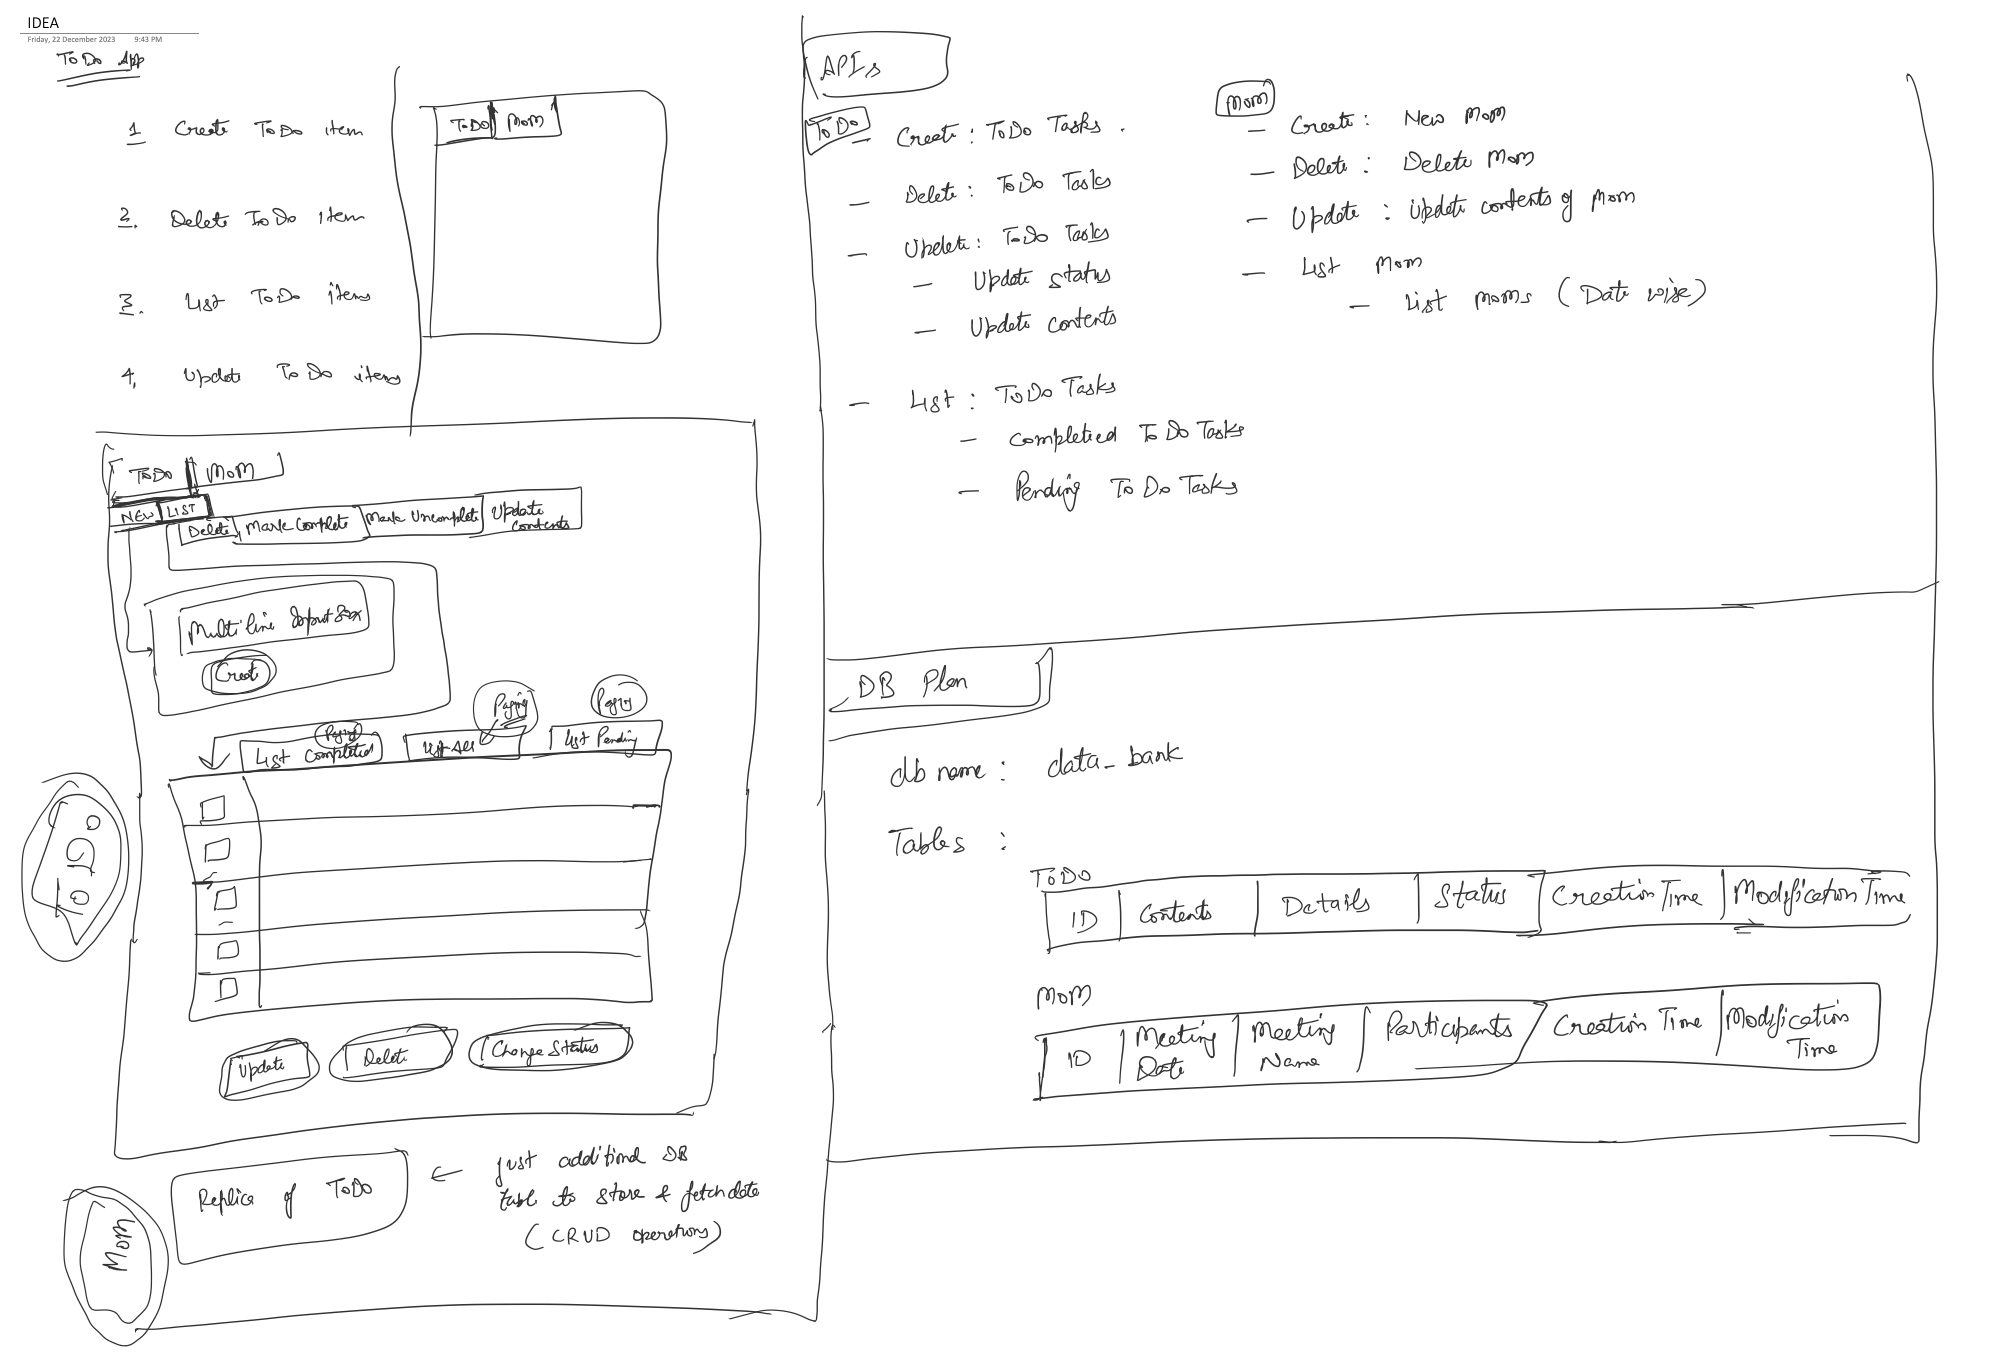 IDEA
Friday, 22 December 2023 9:43 PM
ToDo App
1 Create ToDo item
2. Delete ToDo item
3. List ToDo items
4. Update ToDo items
ToDo MoM
ToDo MoM
NEW LIST
Delete Mark Complete Mark Uncomplete Update Contents
Multi line Input Box
Create
Paging Paging Paging
List Completed List All List Pending
Update Delete Change Status
ToDo
Replica of ToDo
← just additional DB
table to store & fetch data
(CRUD operations)
MoM
APIs
ToDo
- Create : ToDo Tasks .
- Delete : ToDo Tasks
- Update : ToDo Tasks
- Update status
- Update contents
- List : ToDo Tasks
- Completed ToDo Tasks
- Pending ToDo Tasks
MoM
- Create : New MoM
- Delete : Delete MoM
- Update : Update contents of MoM
- List MoM
- List MoMs (Date wise)
DB Plan
db name : data_bank
Tables :
ToDo
ID Contents Details Status Creation Time Modification Time
MoM
ID Meeting Date Meeting Name Participants Creation Time Modification Time